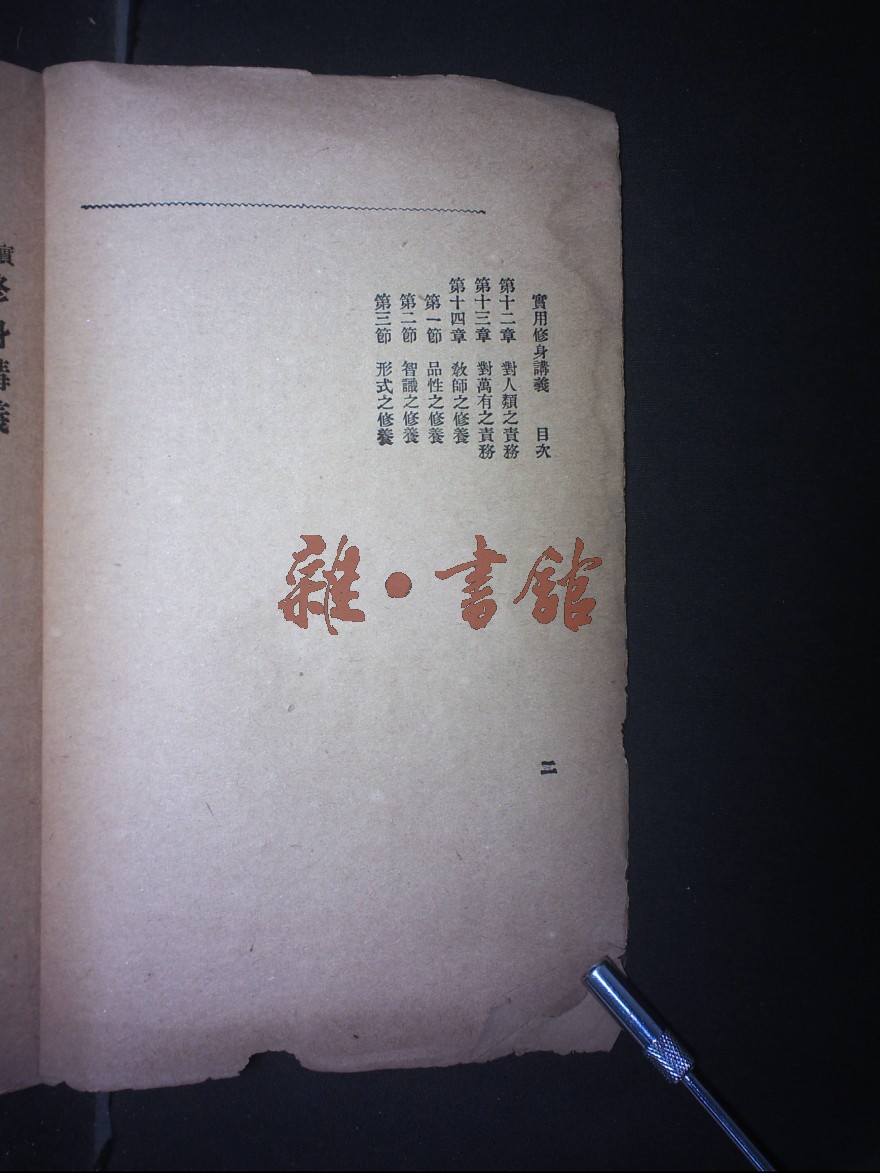 實用修身講義 目次
第十二章 對人類之責務
第十三章 對萬有之責務
第十四章 敎師之修養
第一節 品性之修養
第二節 智識之修養
第三節 形式之修養
二
雜·書館
實修身講義